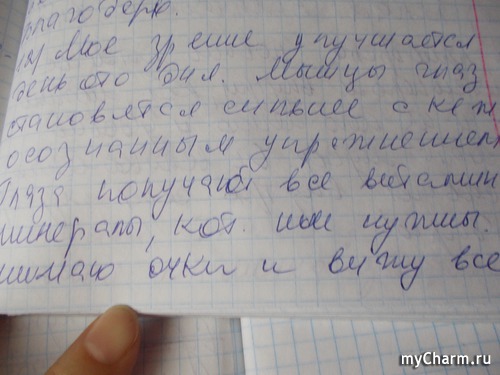 благоверю.
на) Мое зрение улучшается
день ото дня. Мышцы глаз
становятся сильнее с каж
осознанным упражнением
Глаза получают все витамин
минералы, кот. им нужны.
нимаю очки и вижу все
myCharm.ru